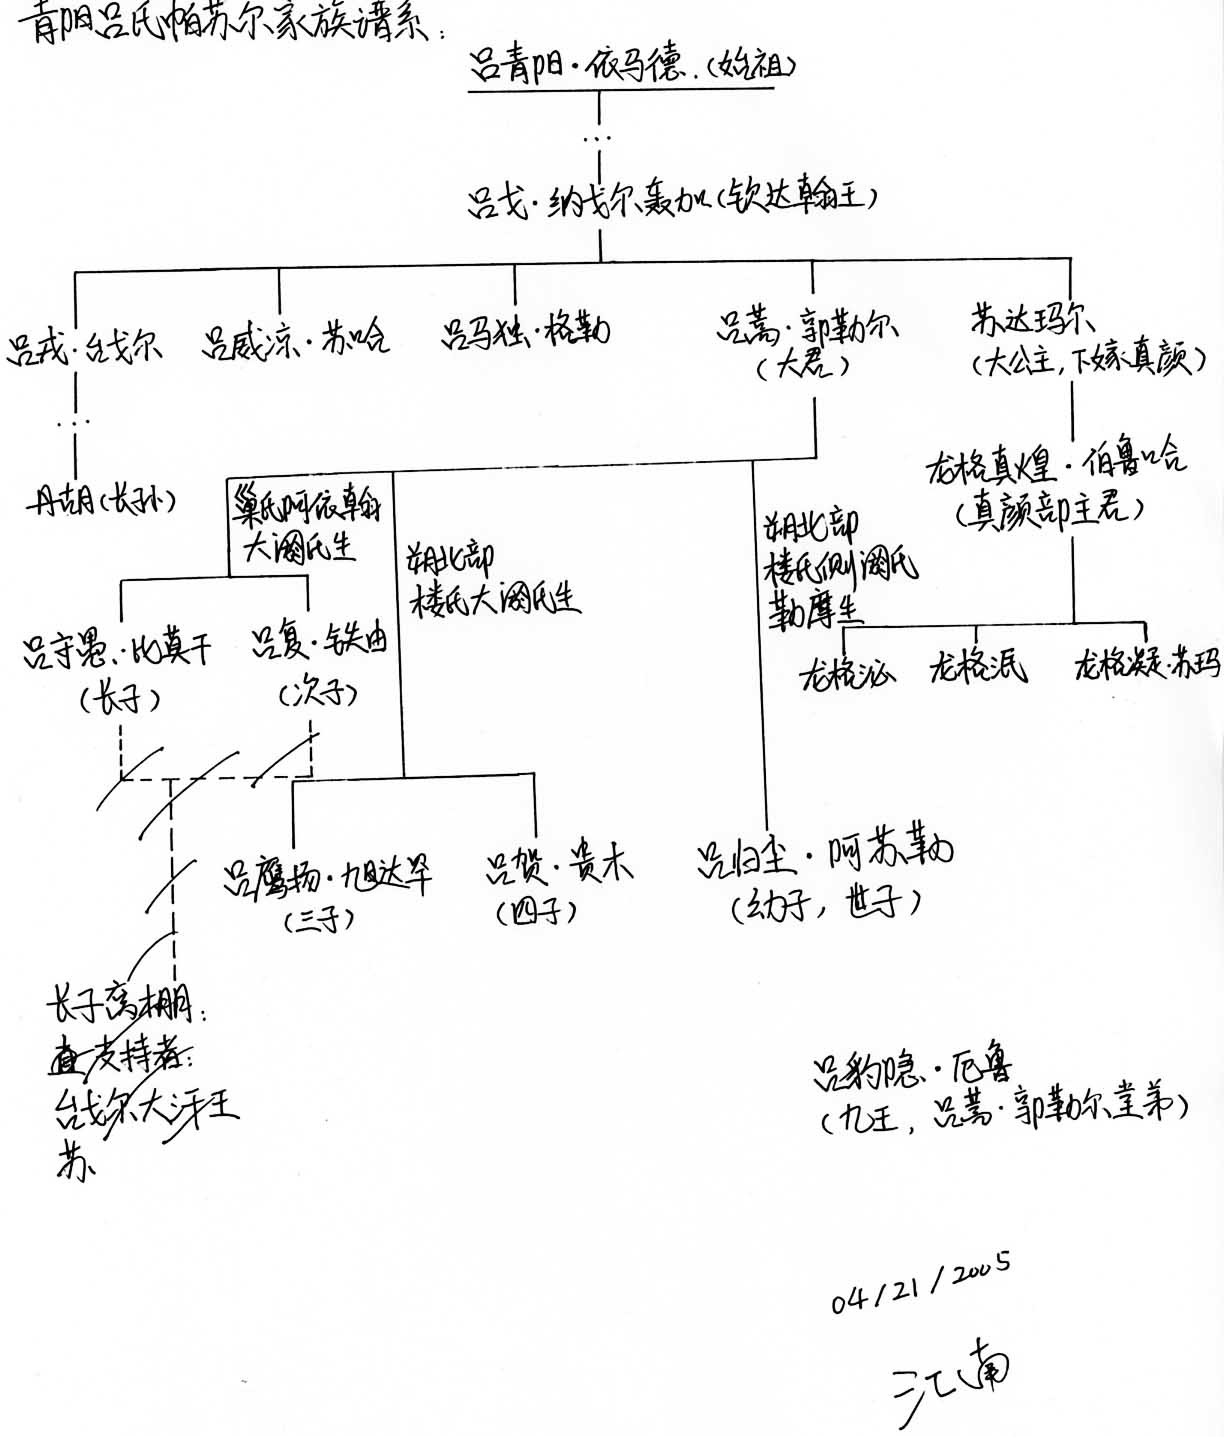 青阳吕氏帕苏尔家族谱系：
吕青阳·依马德.(始祖)
...
吕戈·纳戈尔轰加(钦达翰王)
吕戎·台戈尔
吕威凉·苏哈
吕马独·格勒
吕蒿·郭勒尔
(大君)
苏达玛尔
(大公主,下嫁真颜)
...
丹胡(长孙)
龙格真煌·伯鲁哈
(真颜部主君)
巢氏阿依翰
大阏氏生
朔北部
楼氏大阏氏生
朔北部
楼氏侧阏氏
勒摩生
吕守愚·比莫干
(长子)
吕复·铁由
(次子)
龙格沁
龙格泯
龙格凝·苏玛
吕鹰扬·旭达罕
(三子)
吕贺·贵木
(四子)
吕归尘·阿苏勒
(幼子,世子)
长子窝棚：
支持者：
台戈尔大汗王
苏
吕豹隐·厄鲁
(九王,吕蒿·郭勒尔堂弟)
04/21/2005
江南